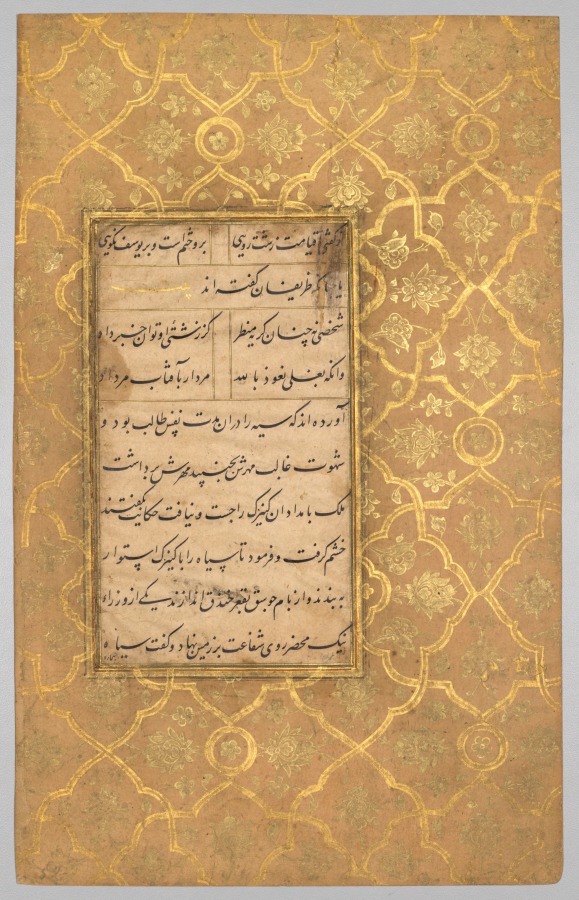 تو گویی تا قیامت زشت رویی برو ختم است و بر یوسف نکویی
یا چنانکه ظریفان گفته اند
شخصی نه چنان کریه منظر کز زشتی او توان خبر داد
وانگه بغلی نعوذ بالله مردار بآفتاب مرداد
آورده اند که سیه را دران مدت نفس طالب بود و
شهوت غالب مهرش بجنبید مهرش برداشت
ملک بامدادان کنیزک را جست و نیافت حکایت بگفتند
خشم گرفت و فرمود تا سیاه را با کنیزک استوار
به بندند و از بام جوسق بقعر خندق اندازند یکی از وزراء
نیک محضر روی شفاعت بر زمین نهاد و گفت سیاه